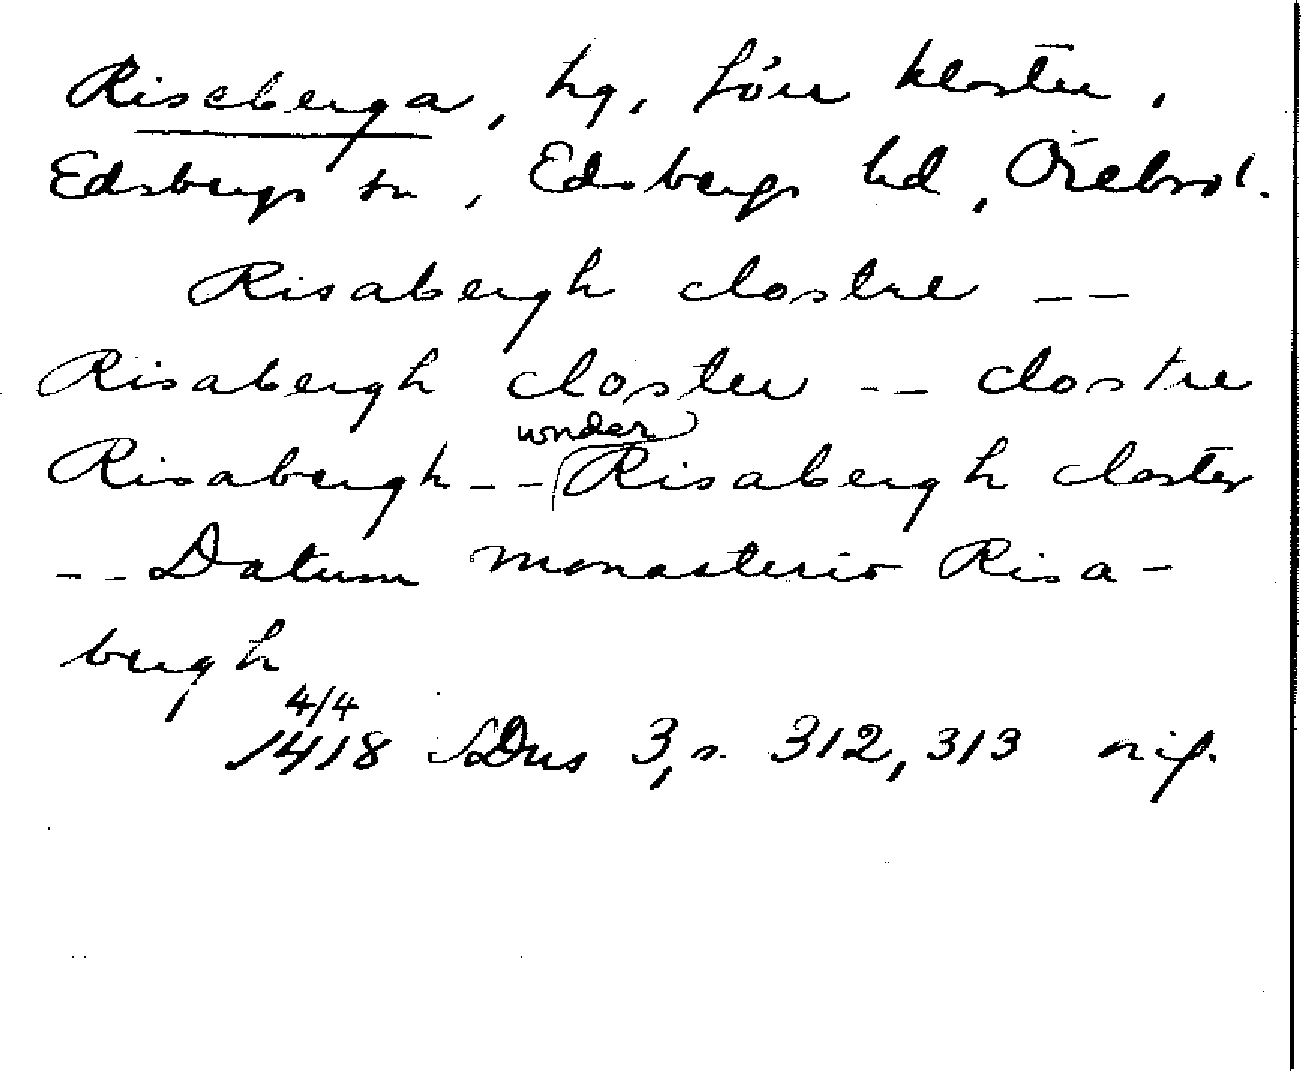 Riseberga, hg, förr kloster,
Edsbergs sn, Edsbergs hd, Örebro l.
Risabergh clostre --
Risabergh closter -- clostre
wnder
Risabergh -- Risabergh closter
-- Datum monasterio Risa-
bergh
4/4
1418 SDns 3, s. 312, 313 nif.